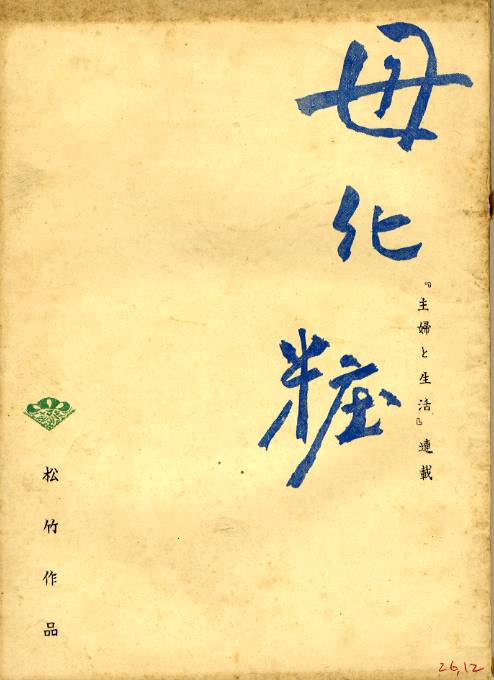 母化粧
『主婦と生活』連載
松竹作品
26,12